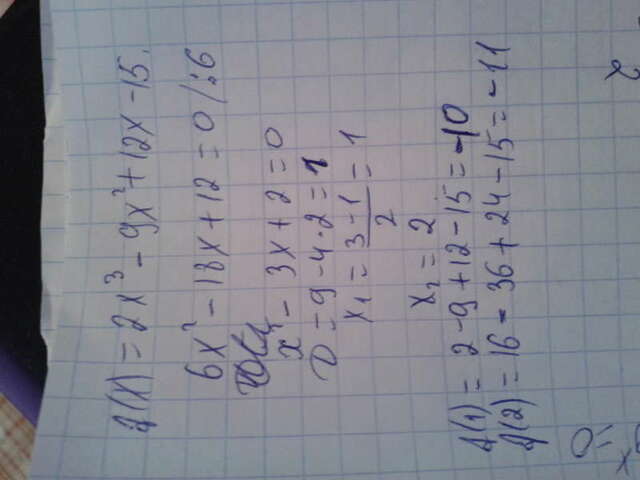 f(x) = 2x³ - 9x² + 12x - 15.
6x² - 18x + 12 = 0 /:6
x² - 3x + 2 = 0
D = 9 - 4·2 = 1
x₁ = (3 - 1)/2 = 1
x₂ = 2
f(1) = 2 - 9 + 12 - 15 = -10
f(2) = 16 - 36 + 24 - 15 = -11
2